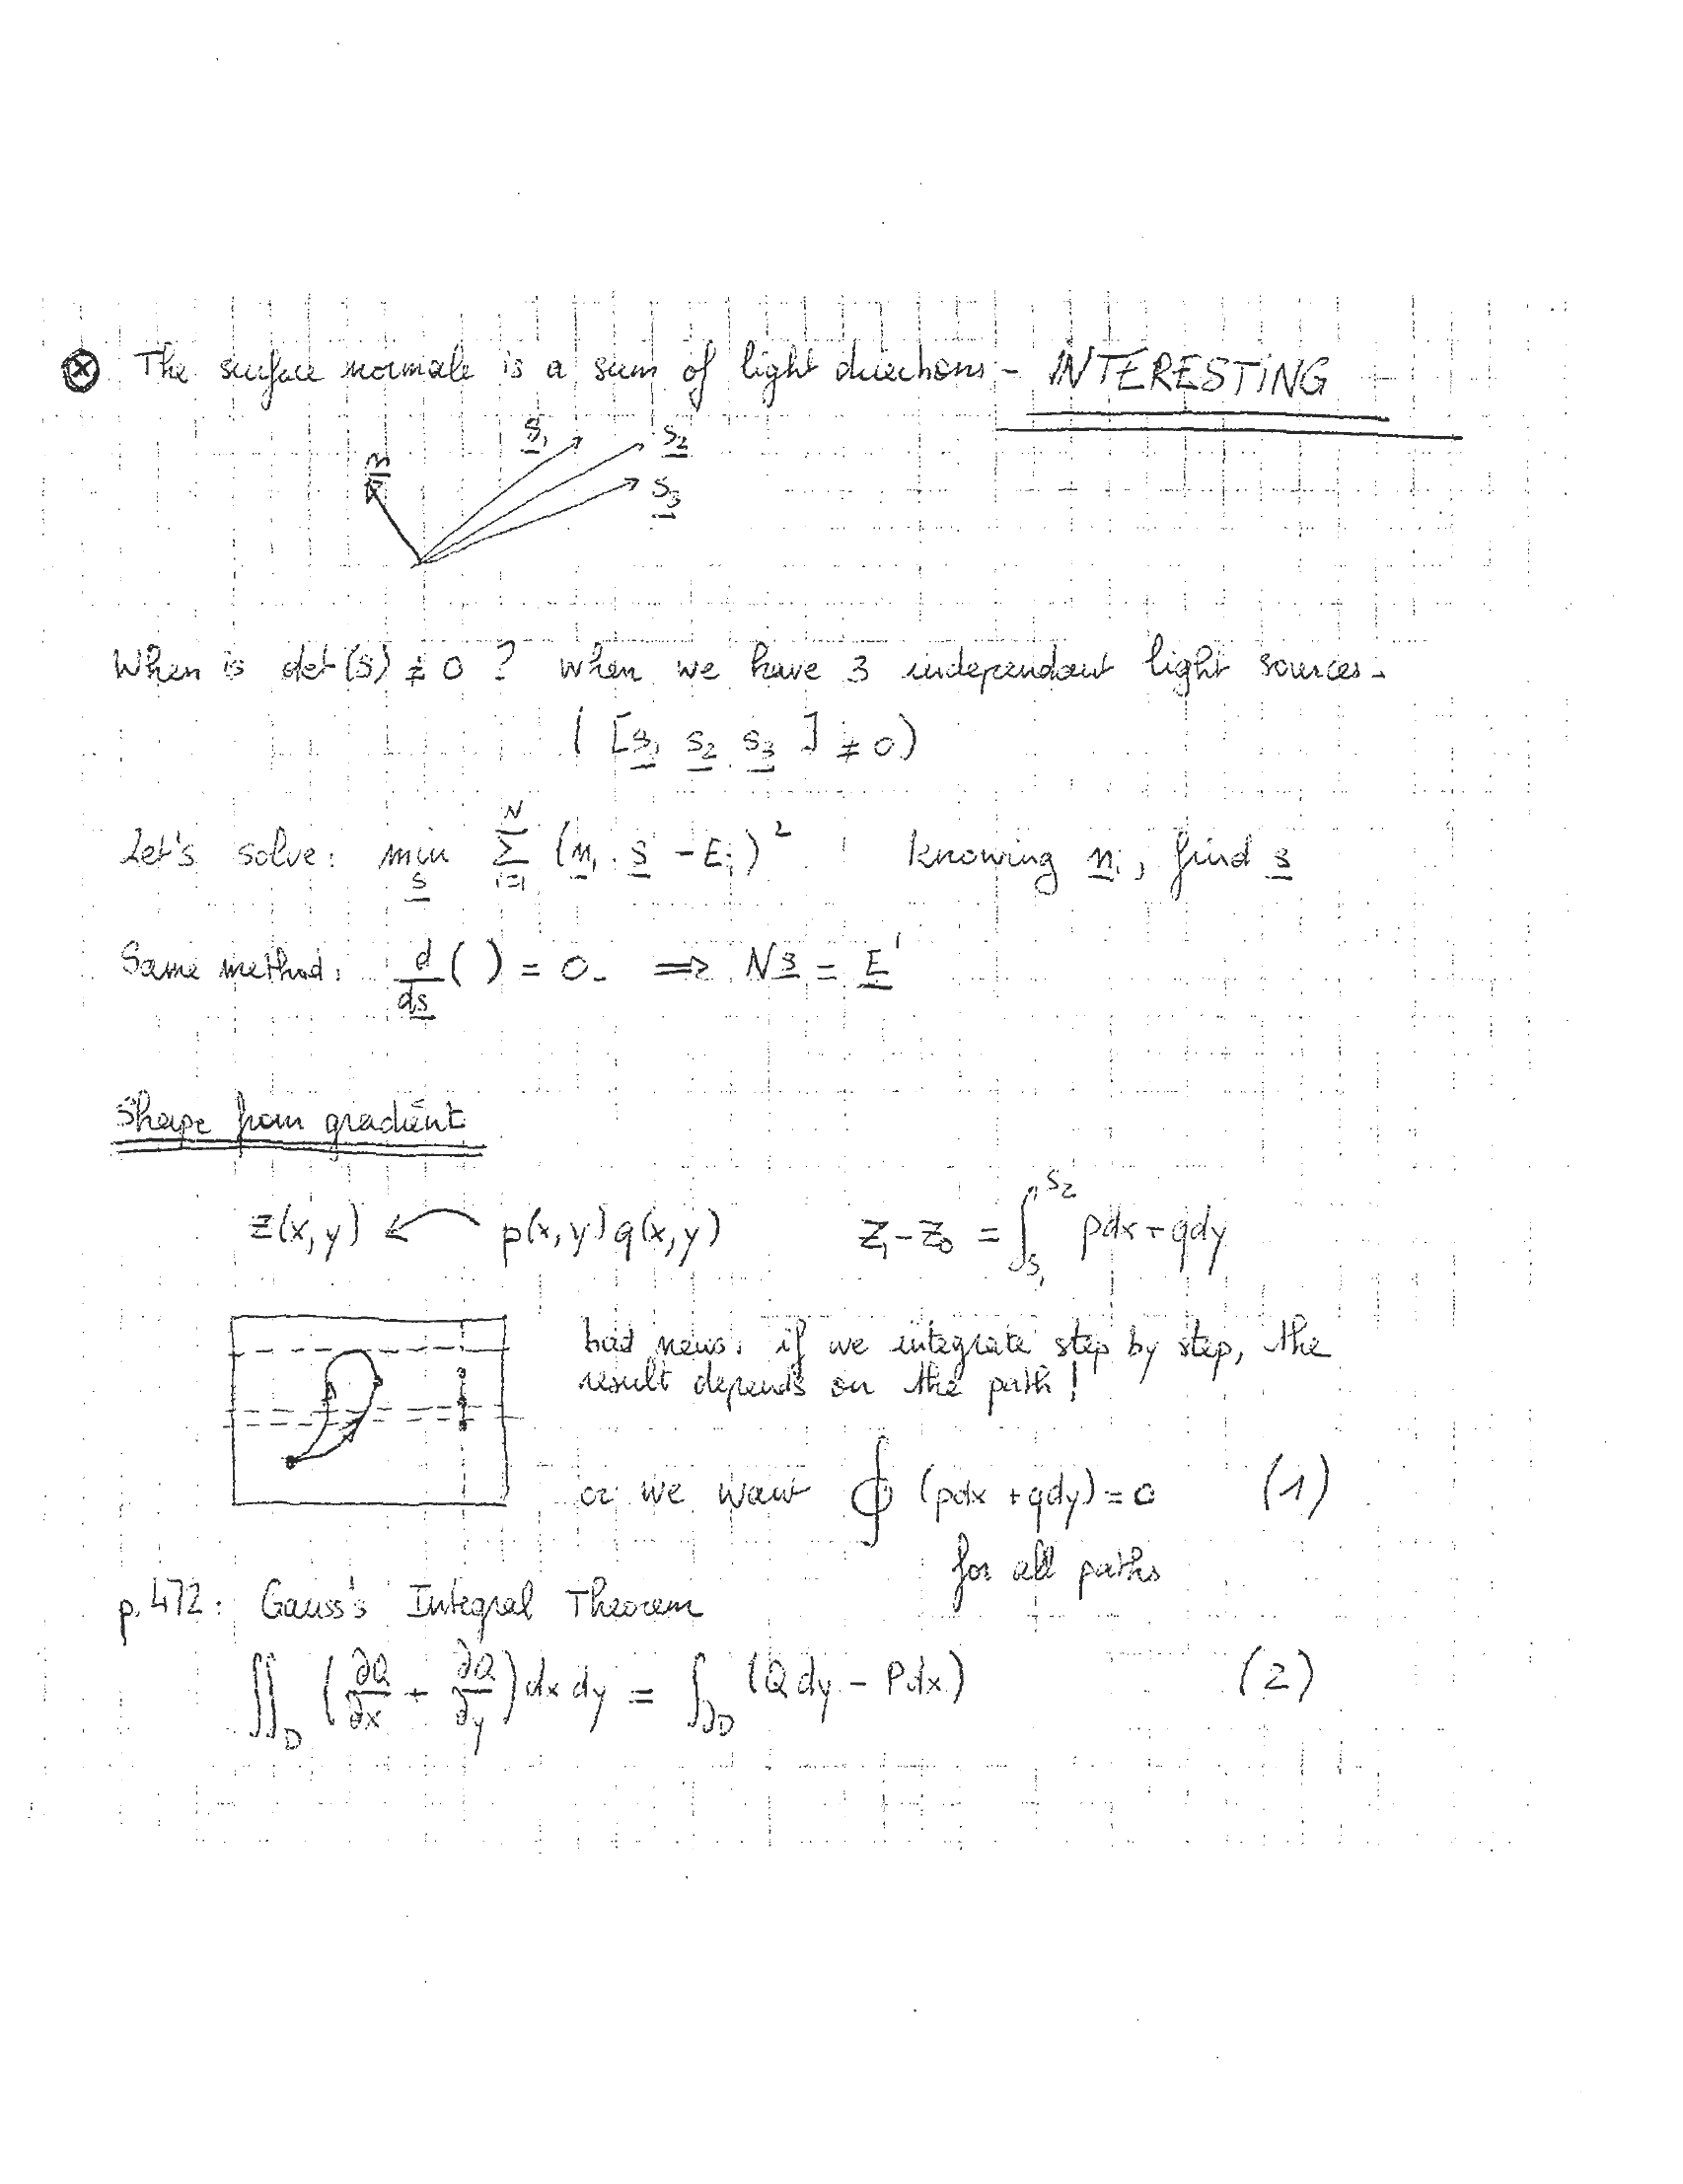 ⊗ The surface normale is a sum of light directions - INTERESTING
n s₁ s₂ s₃
When is det(S) ≠ 0 ? when we have 3 independant light sources.
( [s₁ s₂ s₃ ] ≠ 0)
Let's solve: min_s Σ_{i=1}^{N} (nᵢ · s - Eᵢ)² Knowing nᵢ, find s
Same method: d/ds ( ) = 0. ⟹ N s = E'
Shape from gradient
z(x,y) ↙ p(x,y) q(x,y) z₁ - z₀ = ∫_{S₁}^{S₂} pdx + qdy
bad news: if we integrate step by step, the
result depends on the path!
or we want ∮ (pdx + qdy) = 0 (1)
for all paths
p.472: Gauss's Integral Theorem
∬_D (∂Q/∂x + ∂Q/∂y) dx dy = ∫_{∂D} (Q dy - P dx) (2)